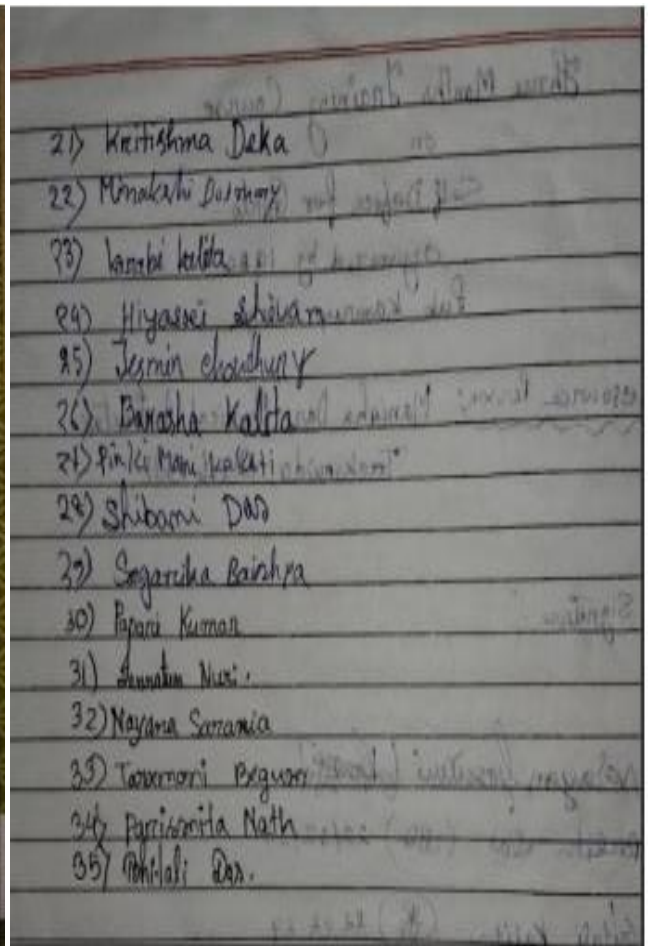 21) Kritishma Deka
22) Minakshi
23) Kalita
24) Hiyashri
25) Jesmin choudhury
26) Barasha Kalita
27) Pinki Mani Kakati
28) Shibani Das
29) Sagarika Baishya
30) Papari Kumar
31) Jannatun Nuri.
32) Nayana Sarania
33) Taramoni Begum
34) Parismita Nath
35) Das.